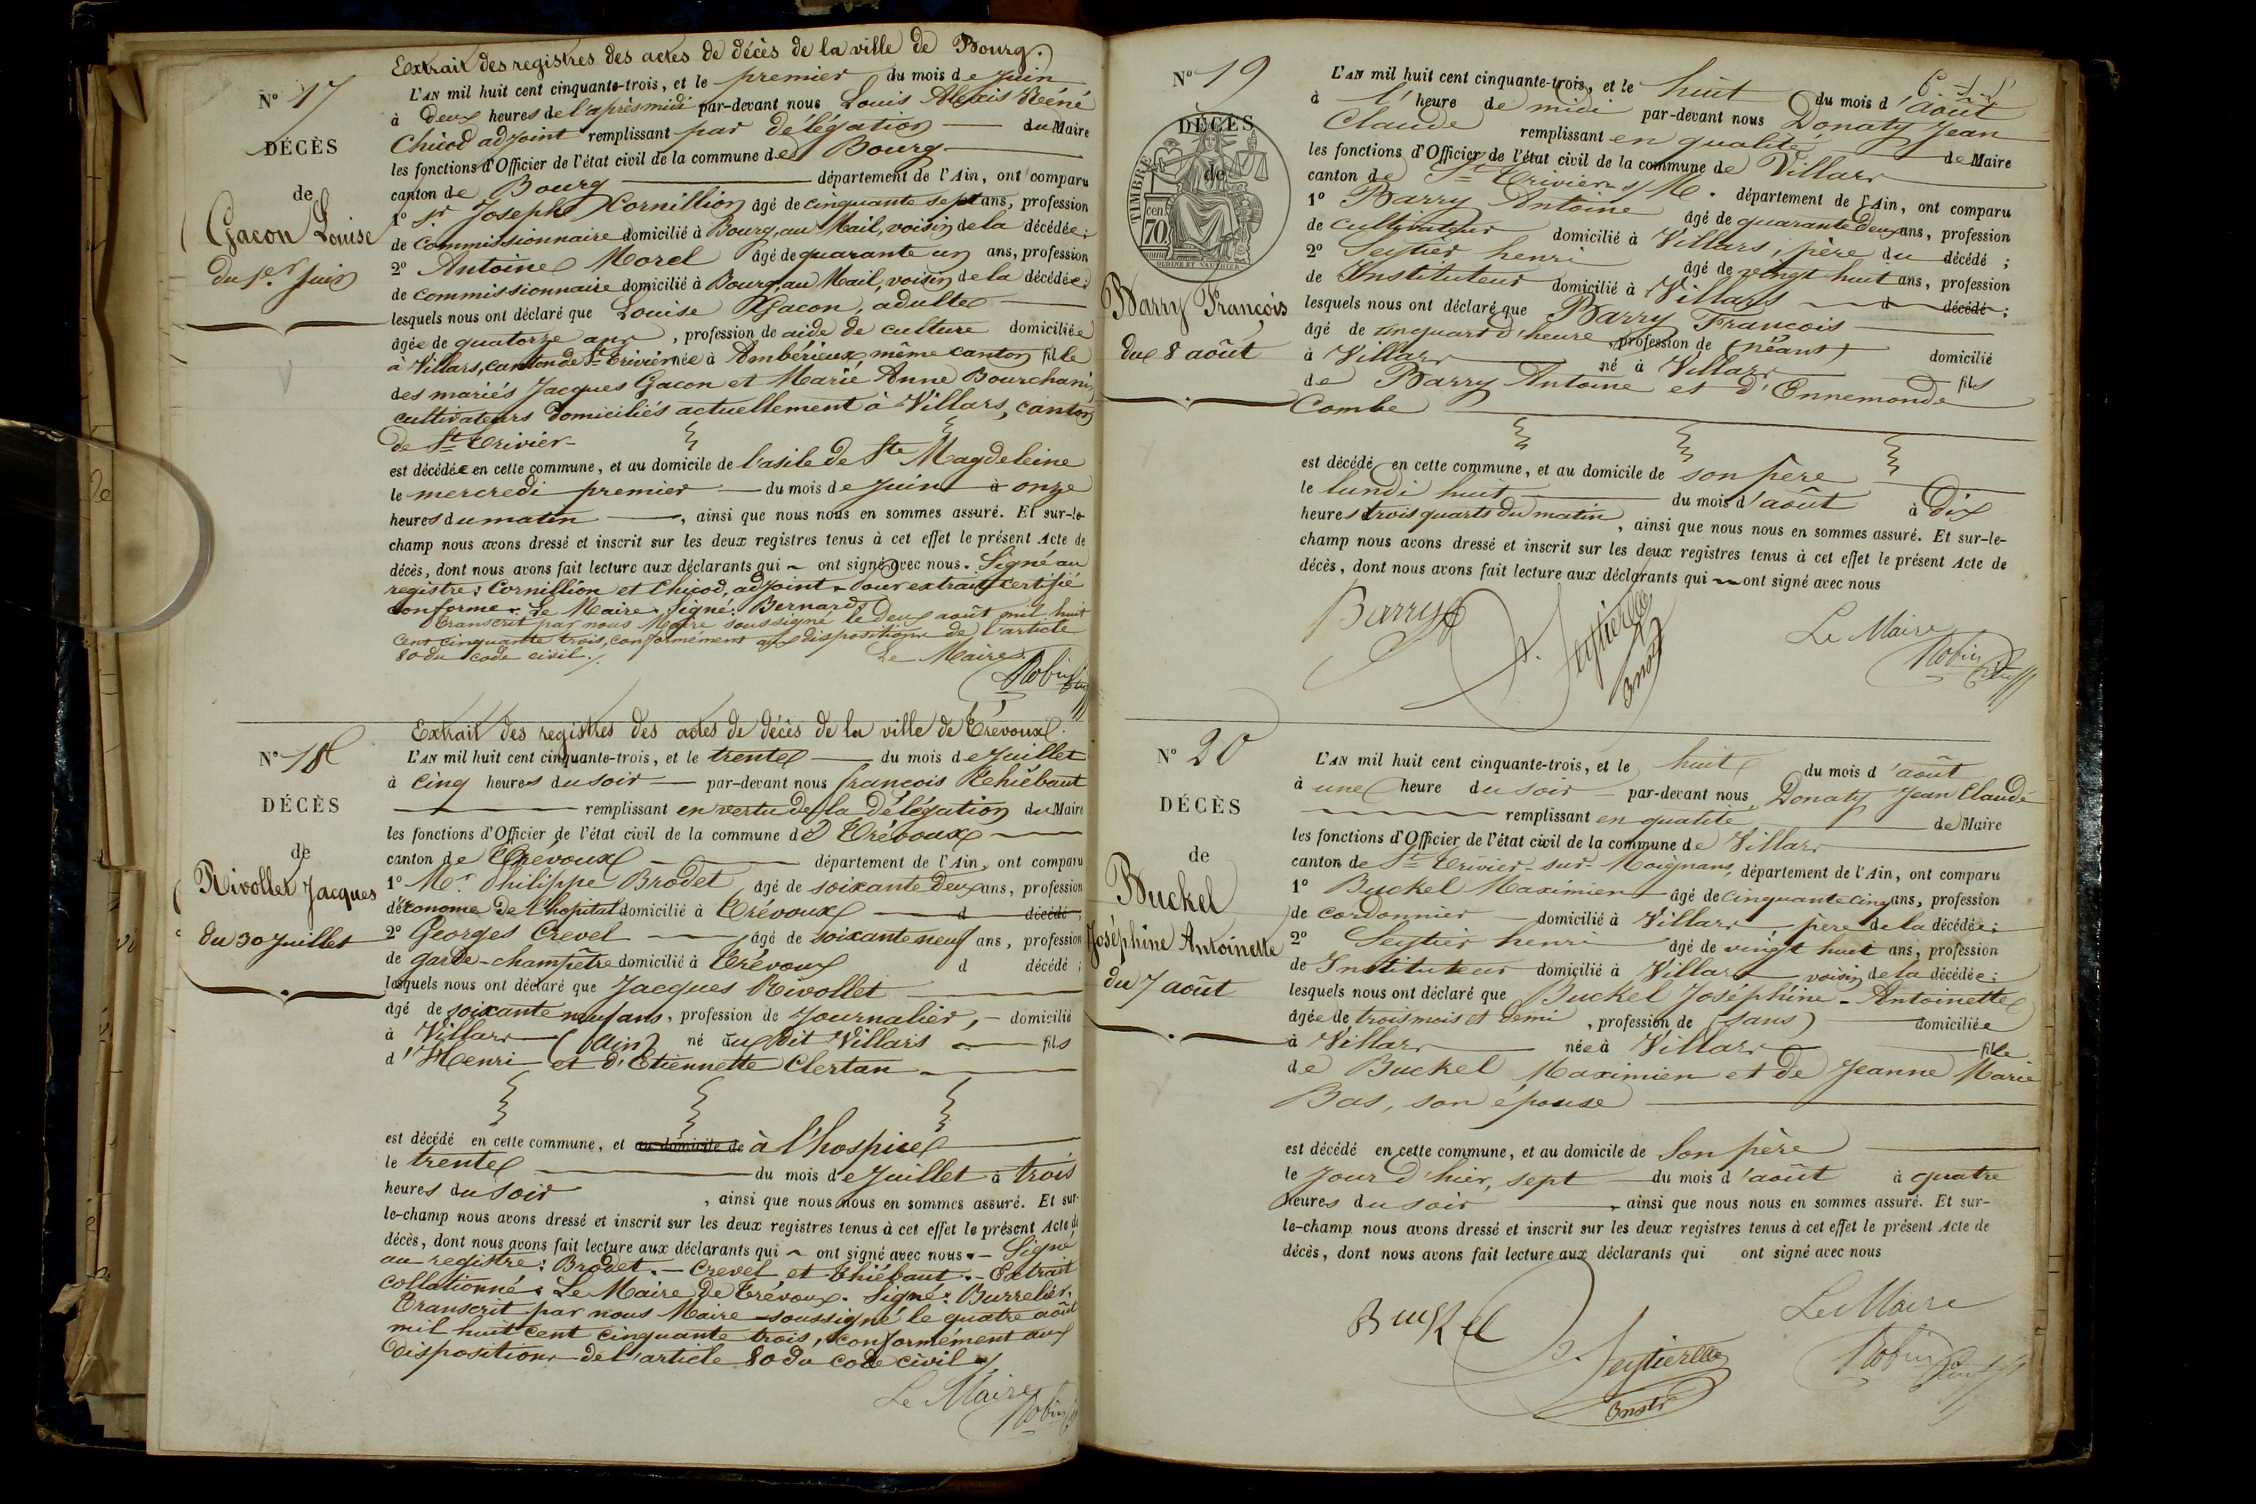 Extrait des registres des actes de décès de la ville de Bourg.
N° 17
DÉCÈS
de
Gacon Louise
du 1er Juin
L'AN mil huit cent cinquante-trois, et le premier du mois de Juin
à deux heures de l'après midi par-devant nous Louis Alexis Réné
Chicod adjoint remplissant par délégation du Maire
les fonctions d'Officier de l'état civil de la commune de Bourg
canton de Bourg département de l'Ain, ont comparu
1° Sr Joseph Cornillion âgé de cinquante sept ans, profession
de commissionnaire domicilié à Bourg, au Mail, voisin de la décédée;
2° Antoine Morel âgé de quarante un ans, profession
de commissionnaire domicilié à Bourg, au Mail, voisin de la décédée;
lesquels nous ont déclaré que Louise Gacon, adulte
âgée de quatorze ans, profession de aide de culture domiciliée
à Villars, canton de St Trivier née à Ambérieux même canton fille
des mariés Jacques Gacon et Marie Anne Bourchanin,
cultivateurs domiciliés actuellement à Villars, canton
de St Trivier
est décédée en cette commune, et au domicile de l'asile de Ste Magdeleine
le mercredi premier du mois de Juin à onze
heures du matin, ainsi que nous nous en sommes assuré. Et sur-le-
champ nous avons dressé et inscrit sur les deux registres tenus à cet effet le présent Acte de
décès, dont nous avons fait lecture aux déclarants qui ont signé avec nous. Signé au
registre: Cornillion et Chicod, adjoint. Pour extrait certifié
conforme. Le Maire, signé: Bernard.
Transcrit par nous Maire soussigné le deux août mil huit
cent cinquante trois, conformément aux dispositions de l'article
80 du code civil.
Le Maire
Robin
Extrait des registres des actes de décès de la ville de Trévoux.
N° 18
DÉCÈS
de
Rivollet Jacques
du 30 Juillet
L'AN mil huit cent cinquante-trois, et le trente du mois de Juillet
à cinq heures du soir par-devant nous françois Thiébaut
remplissant en vertu de la délégation du Maire
les fonctions d'Officier de l'état civil de la commune de Trévoux
canton de Trévoux département de l'Ain, ont comparu
1° Mr. Philippe Brodet âgé de soixante deux ans, profession
d'économe de l'hopital domicilié à Trévoux d décédé;
2° Georges Crevel âgé de soixante neuf ans, profession
de garde-champetre domicilié à Trévoux d décédé;
lesquels nous ont déclaré que Jacques Rivollet
âgé de soixante neuf ans, profession de Journalier, domicilié
à Villars (Ain) né au dit Villars fils
d'Henri et d'Etiennette Clertan
est décédé en cette commune, et au domicile de à l'hospice
le trente du mois de Juillet à trois
heures du soir, ainsi que nous nous en sommes assuré. Et sur-
le-champ nous avons dressé et inscrit sur les deux registres tenus à cet effet le présent Acte de
décès, dont nous avons fait lecture aux déclarants qui ont signé avec nous. Signé
au registre: Brodet. Crevel et Thiébaut. Extrait
collationné: Le Maire de Trévoux. Signé: Burrelier.
Transcrit par nous Maire soussigné le quatre août
mil huit cent cinquante trois, conformément aux
dispositions de l'article 80 du code civil
Le Maire
Robin
N° 19
DÉCÈS
de
TIMBRE
cen. 70
Barry François
du 8 août
L'AN mil huit cent cinquante-trois, et le huit du mois d'août
à l'heure de midi par-devant nous Donaty Jean
Claude remplissant en qualité de Maire
les fonctions d'Officier de l'état civil de la commune de Villars
canton de St Trivier s/ M. département de l'Ain, ont comparu
1° Barry Antoine âgé de quarante deux ans, profession
de cultivateur domicilié à Villars, père du décédé;
2° Seytier henri âgé de vingt huit ans, profession
de Instituteur domicilié à Villars d décédé;
lesquels nous ont déclaré que Barry François
âgé de un quart d'heure, profession de (néant) domicilié
à Villars né à Villars fils
de Barry Antoine et d'Ennemonde
Combe
est décédé en cette commune, et au domicile de son père
le lundi huit du mois d'août à dix
heures trois quarts du matin, ainsi que nous nous en sommes assuré. Et sur-le-
champ nous avons dressé et inscrit sur les deux registres tenus à cet effet le présent Acte de
décès, dont nous avons fait lecture aux déclarants qui ont signé avec nous
Barry
Le Maire
Robin
N° 20
DÉCÈS
de
Buckel
Joséphine Antoinette
du 7 août
L'AN mil huit cent cinquante-trois, et le huit du mois d'août
à une heure du soir par-devant nous Donaty Jean Claude
remplissant en qualité de Maire
les fonctions d'Officier de l'état civil de la commune de Villars
canton de St Trivier-sur-Moignans, département de l'Ain, ont comparu
1° Buckel Maximien âgé de cinquante cinq ans, profession
de cordonnier domicilié à Villars père de la décédée;
2° Seytier henri âgé de vingt huit ans, profession
de Instituteur domicilié à Villars voisin de la décédée;
lesquels nous ont déclaré que Buckel Joséphine-Antoinette
âgée de trois mois et demi, profession de (sans) domiciliée
à Villars née à Villars fille
de Buckel Maximien et de Jeanne Marie
Bas, son épouse
est décédé en cette commune, et au domicile de son père
le jour d'hier, sept du mois d'août à quatre
heures du soir, ainsi que nous nous en sommes assuré. Et sur-
le-champ nous avons dressé et inscrit sur les deux registres tenus à cet effet le présent Acte de
décès, dont nous avons fait lecture aux déclarants qui ont signé avec nous
Buckel
Le Maire
Robin